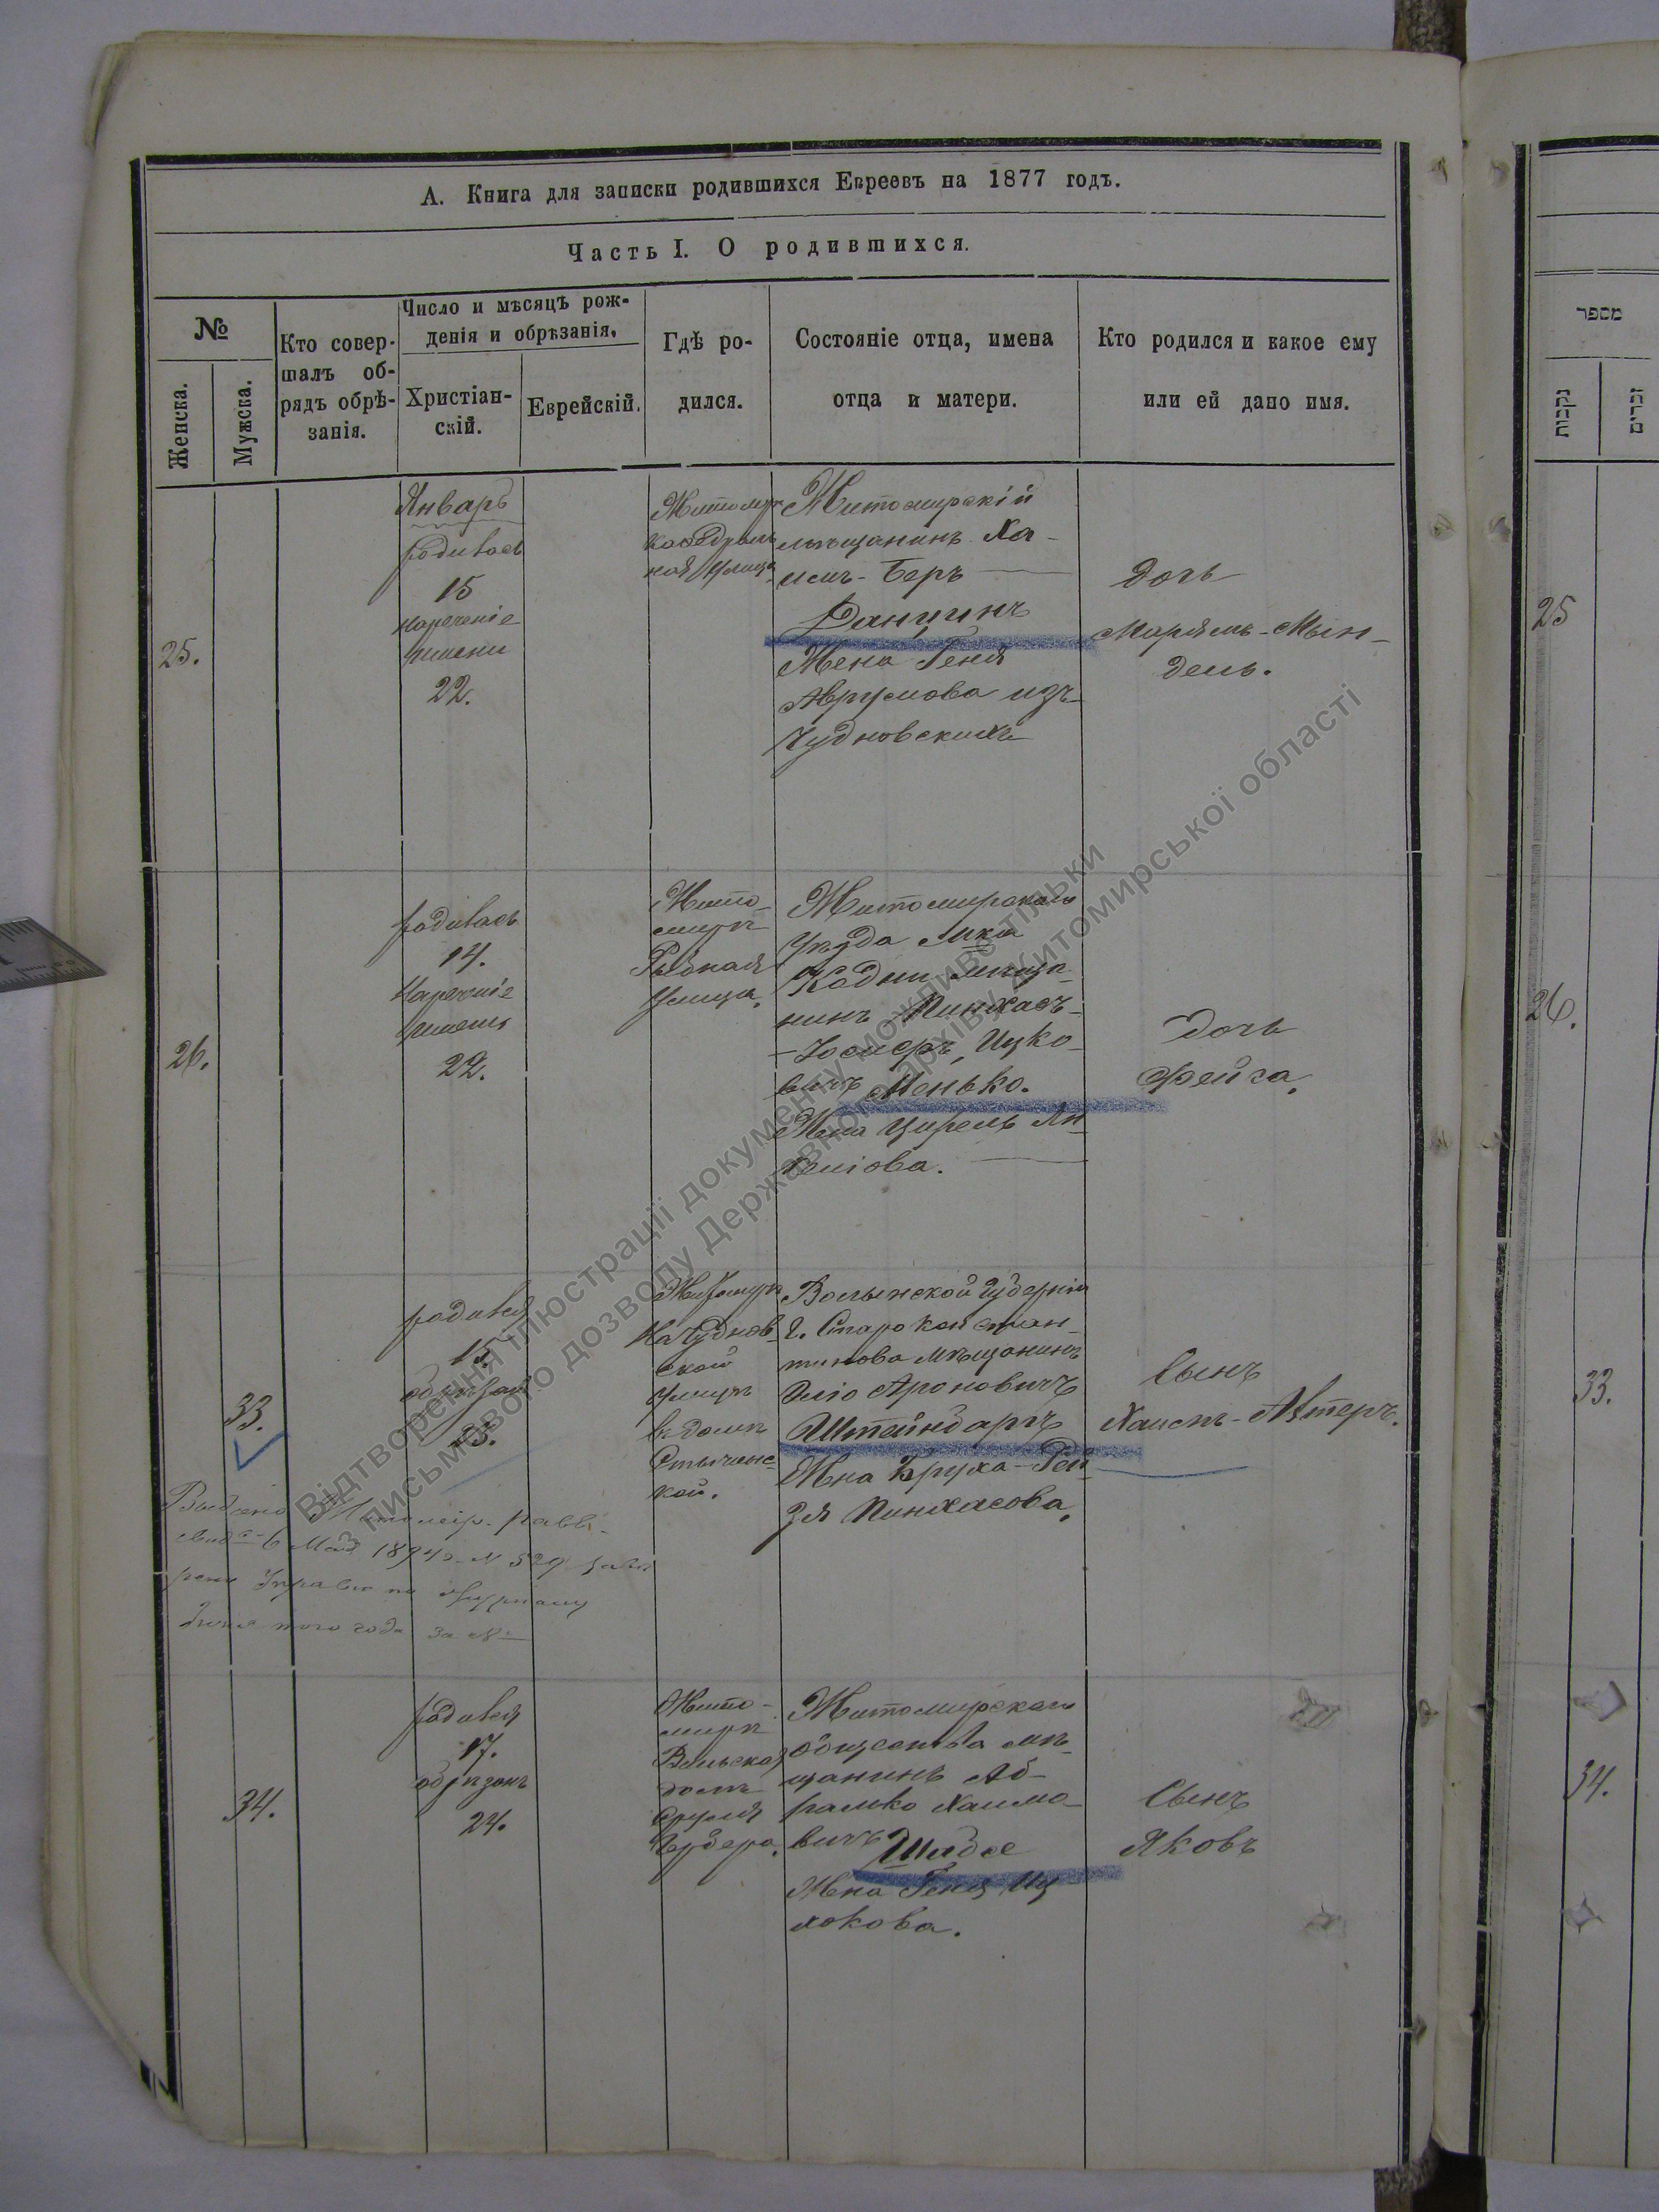 А. Книга для записки родившихся Евреевъ на 1877 годъ.
Часть I. О родившихся.
№
Женска.
Мужска.
Кто совер-
шалъ об-
рядъ обрѣ-
занія.
Число и мѣсяцъ рож-
денія и обрѣзанія.
Христіан-
скій.
Еврейскій.
Гдѣ ро-
дился.
Состояніе отца, имена
отца и матери.
Кто родился и какое ему
или ей дано имя.
25.
Январь
родилась
15
нареченіе
имени
22.
Житомиръ
кафедраль
ная улица
Житомирскій
мѣщанинъ Ха-
имъ-Беръ
Данцинъ
Жена Геня
Аврумова изъ
Чудновскихъ
Дочь
Маріямъ-Мин-
дель.
26.
родилась
14.
Нареченіе
имени
22.
Жито-
миръ
Рыбная
улица.
Житомирскаго
уѣзда мка
Кодни мѣща-
нинъ Пинхасъ-
-Юсперъ Ицко-
вичъ Менько.
Жена Цирель Ян-
келіова.
Дочь
Фейга.
33.
родился
15.
обрѣзанъ
23.
Житомиръ
на Чуднов-
ской
улицѣ
въ домѣ
Волынской Губерніи
г. Старо Констан-
тинова мѣщанинъ
Эліо Ароновичъ
Штейндаргъ
Жена Бруха-Рей-
зя Пинхасова.
Сынъ
Хаимъ-Алтеръ.
6 Мая 1894 г. № 529
того года за №
34.
родился
17.
обрѣзанъ
24.
Жито-
миръ
Вильская
домъ
Сруля
Житомирскаго
общества мѣ-
щанинъ Аб-
рамко Хаимо-
вичъ Шидле
Жена Геня Иц
кокова.
Сынъ
Яковъ
מספר
נקבות
זכרים
25
26.
33.
34.
Відтворення ілюстрації документу можливо тільки
з письмового дозволу Державного архіву Житомирської області